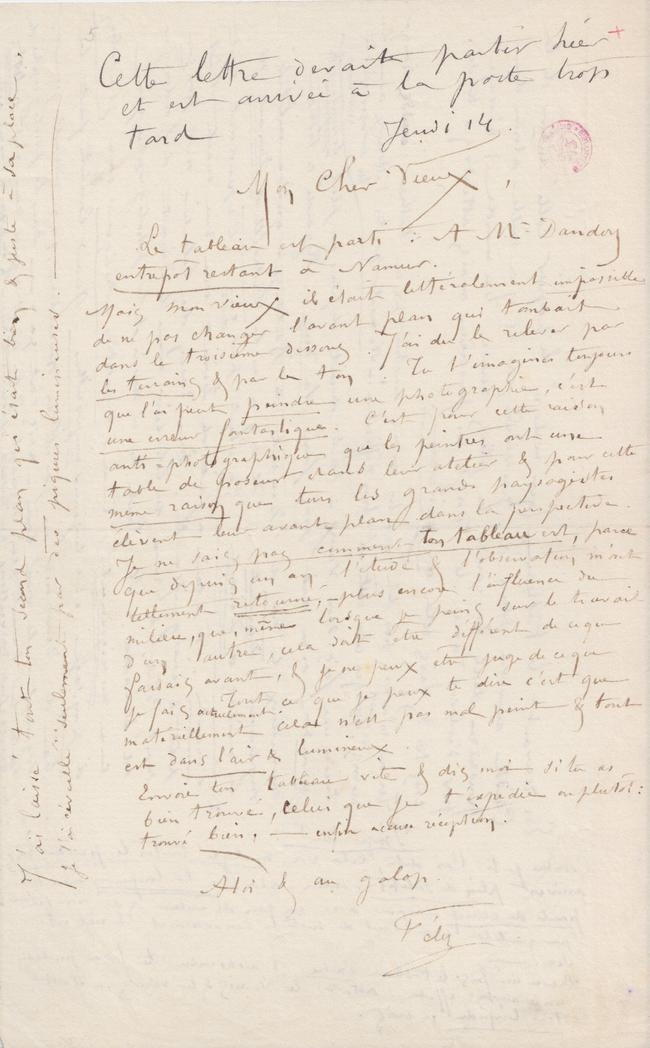 Cette lettre devait partir hier
et est arrivée à la poste trop
tard
Jeudi 14.
Mon Cher Vieux,
Le tableau est parti : A Mr Dandoy
entrepôt restant à Namur.
Mais mon vieux il était littéralement impossible
de ne pas changer l'avant plan qui tombait
dans le troisième dessous. J'ai du le relever par
les terrains & par le ton. Tu t'imagines toujours
que l'ai peut peindre une photographie, c'est
une erreur fantastique. C'est pour cette raison
anti-photographique que les peintres ont une
table de poseurs dans leur atelier & pour cette
même raison que tous les grands paysagistes
élèvent leur avant plan dans la perspective.
Je ne sais pas comment ton tableau est, parce
que depuis un an l'étude & l'observation m'ont
tellement retourné, plus encore l'influence du
milieu, que, même lorsque je peins sur le travail
d'un autre, cela doit être différent de ce que
faisais avant, & je ne peux être juge de ce que
je fais actuellement. Tout ce que je peux te dire c'est que
matériellement cela n'est pas mal peint & tout
est dans l'air & lumineux.
Envoie ton tableau vite & dis moi si tu as
bien trouvé, celui que je t'expédie ou plutôt :
trouvé bien, — enfin accuse réception.
A toi & au galop.
Fély
J'ai laissé tout ton second plan qui était bien & juste à sa place.
je l'ai seulement par des piques lumineuses.